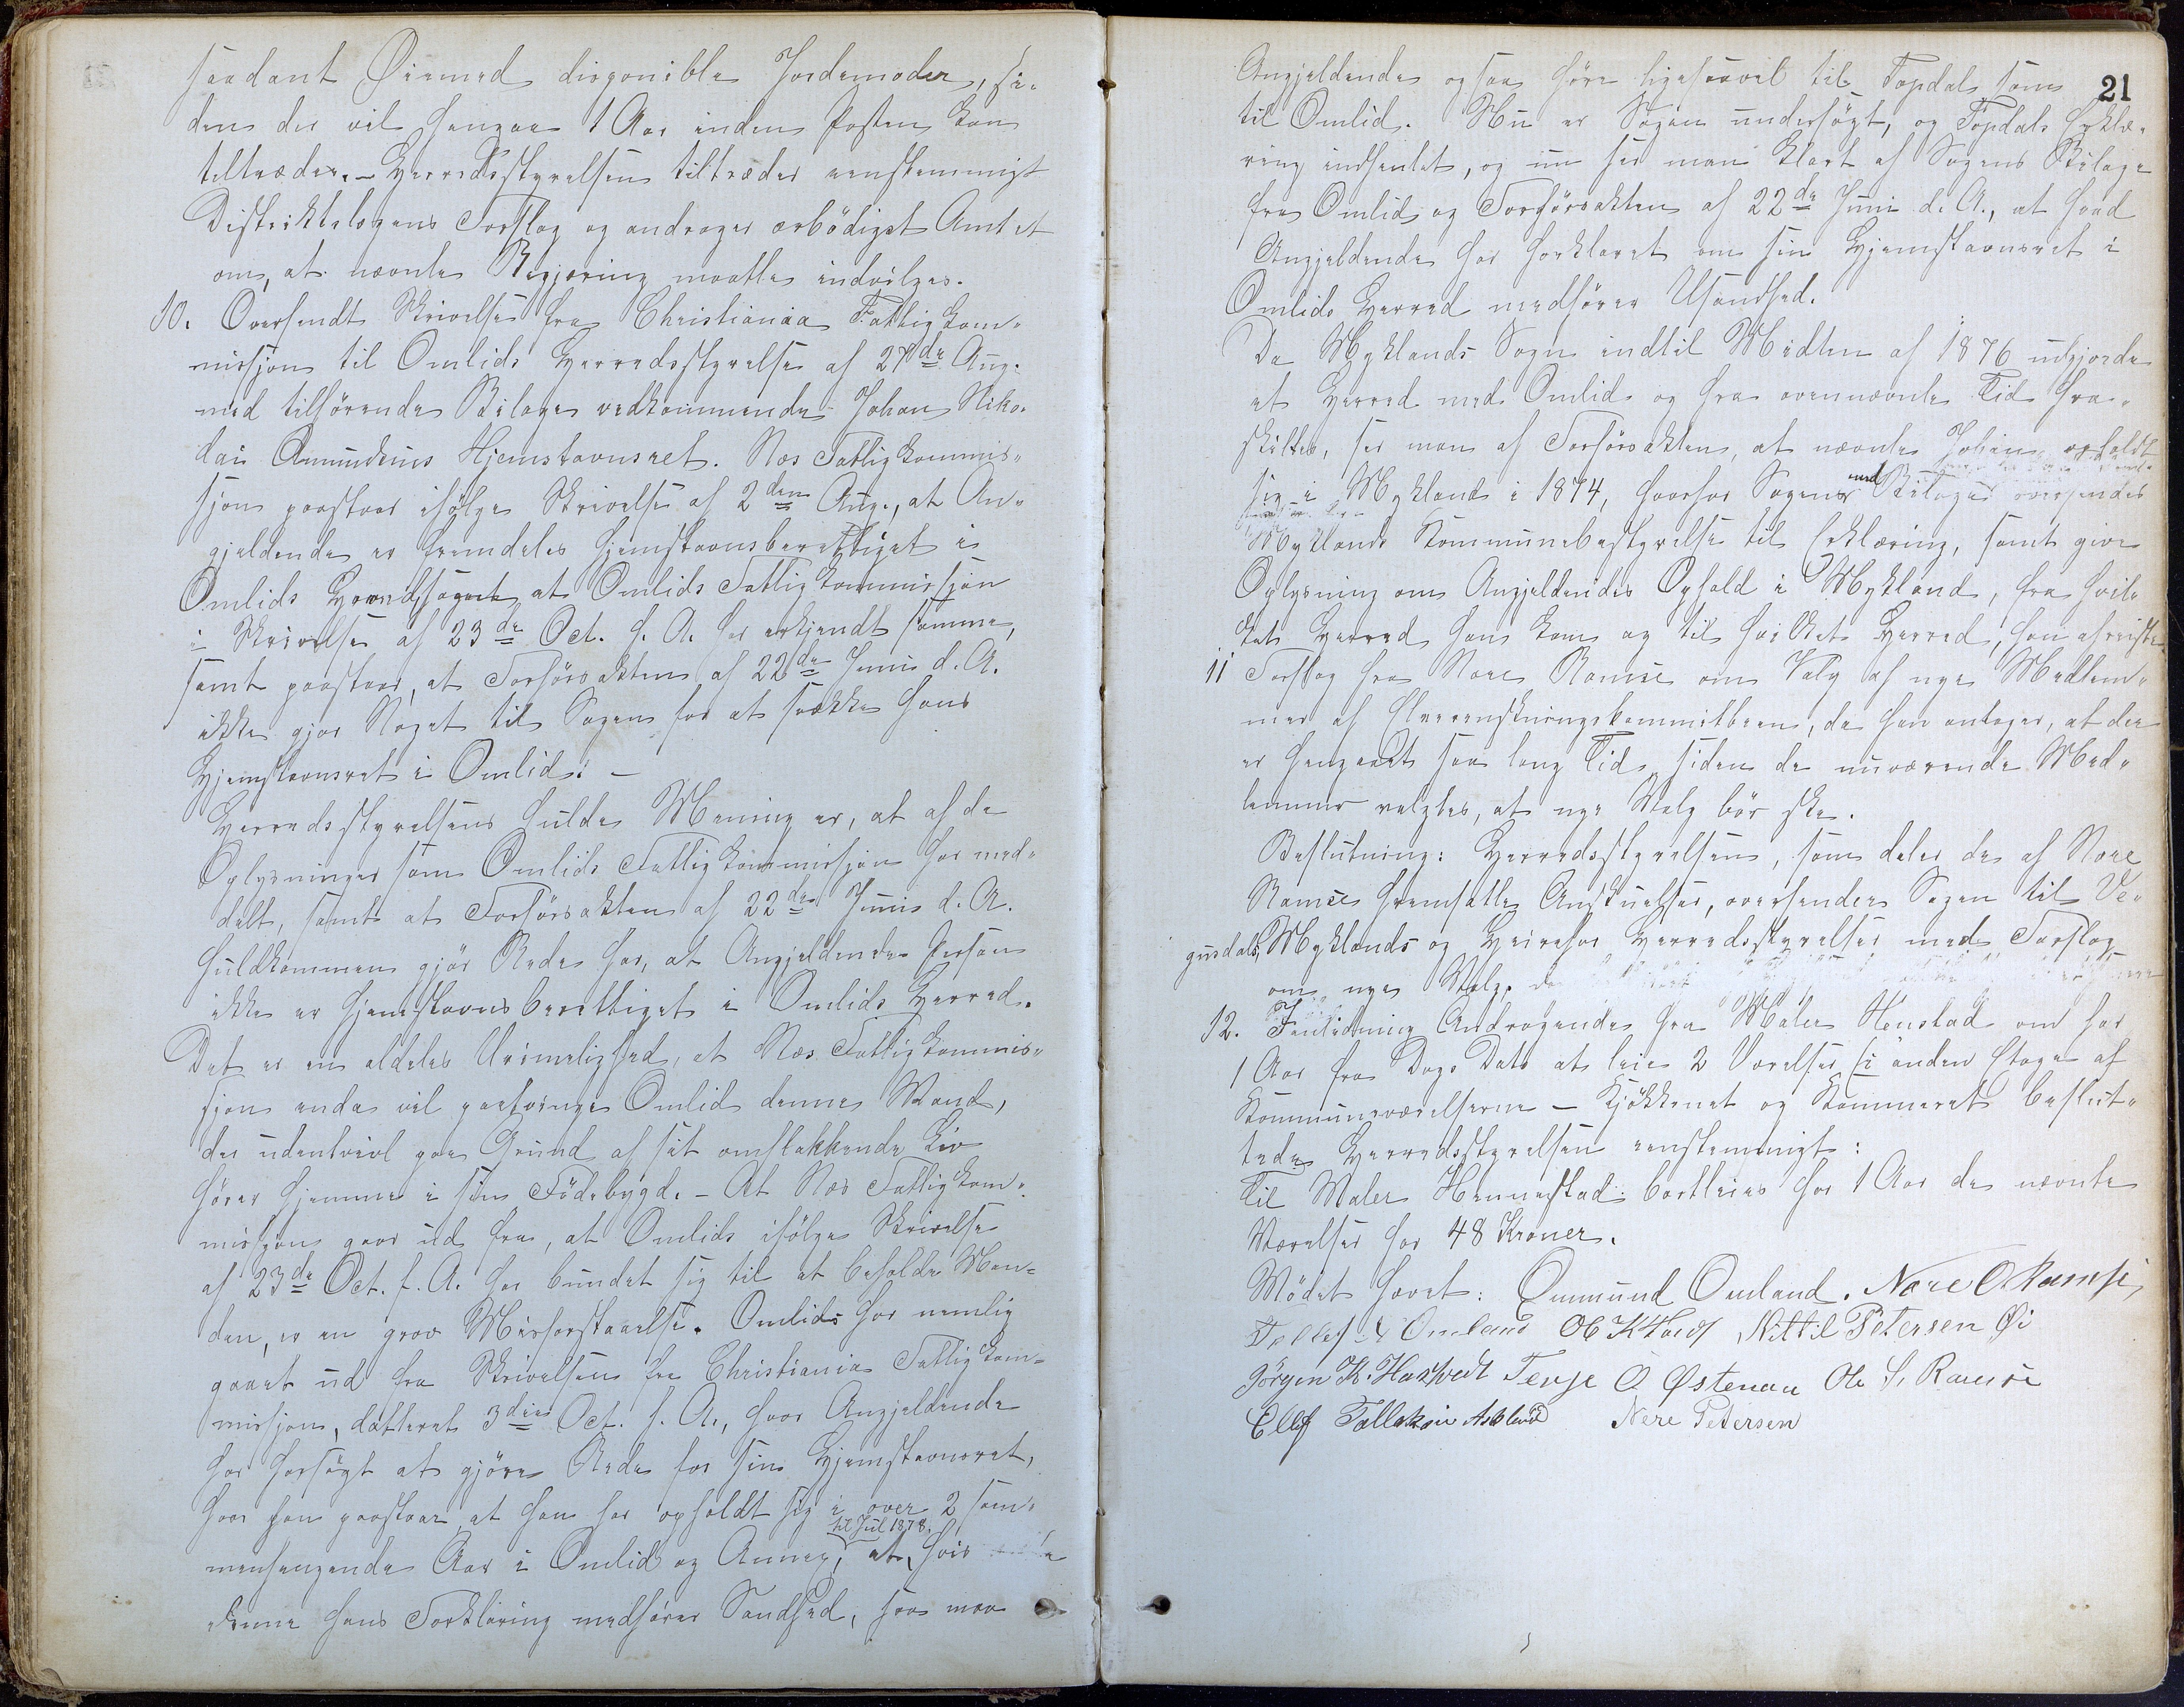 saadant Øiemed disponible Jordemoder, si-
den der vil hengaa 1 Aar inden Posten kan
tiltrædes. – Herredsstyrelsen tiltræder eenstemmigt
Distriktslægens Forslag og andrager ærbödigst Amtet
om, at nævnte Begjæring maatte indvilges.
10. Oversendt Skrivelse fra Christiania Fattigkom-
missjon til Omlids Herredsstyrelse af 27de Aug.
med tilhörende Bilage vedkommende Johan Niko-
lai Amundsens Hjemstavnsret. Næs Fattigkommis-
sjon paastaar ifölge Skrivelse af 2den Aug., at An-
gjeldende er fremdeles hjemstavnsberettiget i
Omlids Herred, at Omlids Fattigkommissjon
i Skrivelse af 23de Oct. f. A. har erkjendt samme,
samt paastaar, at Forhörsakten af 22de Juni d. A.
ikke gjör Noget til Sagen for at svække hans
Hjemstavnsret i Omlid. –
Herredsstyrelsens fulde Mening er, at af de
Oplysninger som Omlids Fattigkommissjon har med-
delt, samt at Forhörsakten af 22de Juni d. A.
fuldkommen gjör Rede for, at Angjeldende Person
ikke er hjemstavnsberettiget i Omlids Herred.
Det er en aldeles Urimelighed, at Næs Fattigkommis-
sjon enda vil paatvinge Omlid denne Mand,
der udentvivl paa Grund af sit omflakkende Liv
hörer hjemme i sin Födebygd. – At Næs Fattigkom-
missjon gaar ud fra, at Omlids ifölge Skrivelse
af 23de Oct. f. A. har bundet sig til at beholde Man-
den, er en grov Misforstaaelse. Omlids har nemlig
gaaet ud fra Skrivelsen fra Christiania Fattigkom-
missjon, datteret 3die Oct. f. A., hvor Angjeldende
har forsögt at gjöre Rede for sin Hjemstavnsret,
hvor han paastaar, at han har opholdt sig i over 2 sam-
til Jul 1878.
menhengende Aar i Omlid og Annex, at, hvis
denne hans Forklaring medförer Sandhed, saa maa
21
Angjeldende ogsaa höre ligesaavel til Topdal som
til Omlid. Nu er Sagen undersögt, og Topdals Erklæ-
ring indhentet, og nu ser man klart af Sagens Bilage
fra Omlid og Forhörsakten af 22de Juni d. A., at hvad
Angjeldende har forklaret om sin Hjemstavnsret i
Omlids Herred medförer Usandhed.
Da Myklands Sogn indtil Midten af 1876 udgjorde
et Herred med Omlid og fra ovennævnte Tid fra-
skiltes, ser man af Forhörsakten, at nævnte Johan opholdt
sig i Mykland i 1874, hvorfor Sagen med Bilage oversendes
Myklands Kommunebestyrelse til Erklæring, samt give
Oplysning om Angjeldendes Ophold i Mykland, fra hvil-
ket Herred han kom og til hvilket Herred, han afreiste.
11 Forslag fra Nere Ramse om Valg af nye Medlem-
mer af Elverenskningskommitteen, da han antager, at der
er hengaaet saa lang Tid, siden de nuværende Med-
lemmer valgtes, at nye Valg bör ske.
Beslutning: Herredsstyrelsen, som deler de af Nere
Ramse fremsatte Anskuelser, oversender Sagen til Ve-
gusdals, Myklands og Herefos Herredsstyrelser med Forslag
om nye Valg.
12. I Andragende fra Maler Henstad om for
1 Aar fra Dags Dato at leie 2 Værelser i anden Etage af
Kommuneværelserne – Kjökkenet og Kammeret beslut-
tede Herredsstyrelsen eenstemmigt:
Til Maler Hennestad bortleies for 1 Aar de nævnte
Værelser for 48 Kroner.
Mödet hævet: Ommund Omland. Nere O Ramse
Tellef Omland Ob K Hovet Nittil Petersen Øi
Jörgen K. Haxtvedt Terje O Østenaa Ole S. Ramse
Ellef Tallaksen Askland Nere Petersen